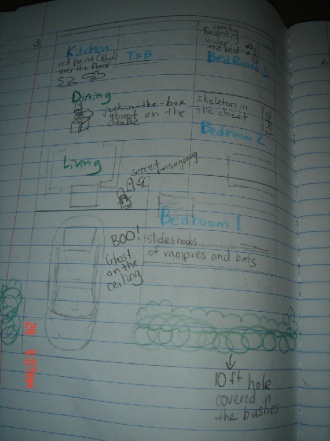 Kitchen
red paint (blood)
over the floor
T&B
under
the bed
BedRoom 3
Dining
jack-in-the-box
ghost on the
table
skeleton in
the closet
Bedroom 2
Living
secret
Bedroom 1
BOO!
Ghost
on the
ceiling
slideshows
of vampires and bats
10 ft hole
covered in
the bushes